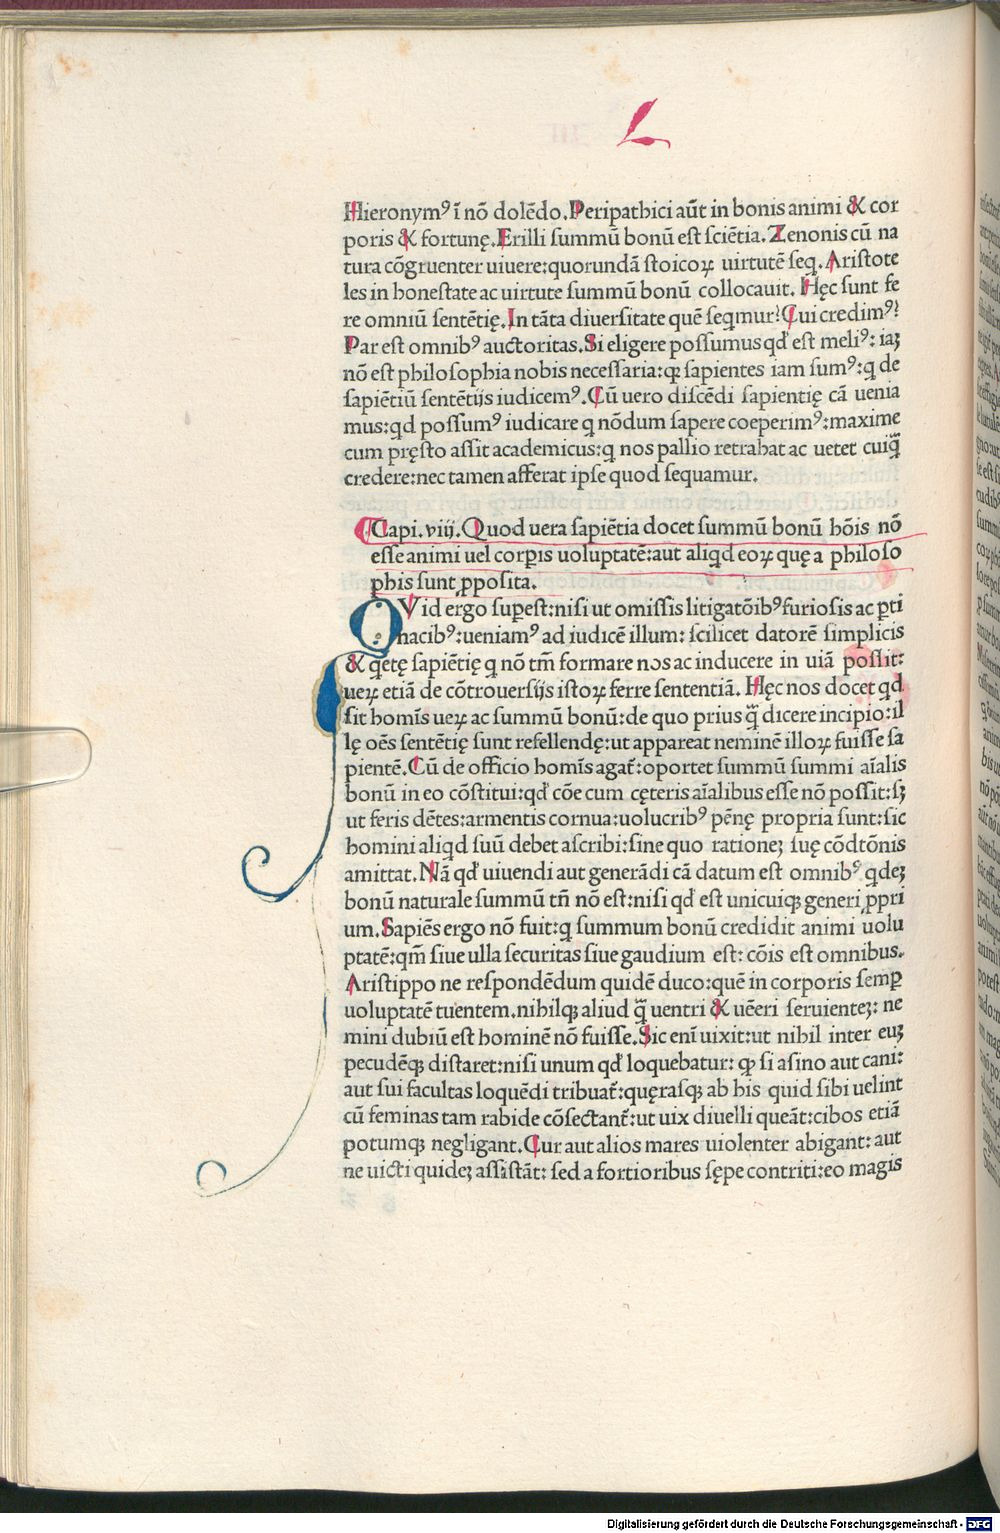 L
Hieronymꝰ ī nō dolēdo. Peripathici aūt in bonis animi & cor
poris & fortunę. Erilli summū bonū est sciētia. Zenonis cū na
tura cōgruenter uiuere: quorundā stoicoꝝ uirtutē seq. Aristote
les in honestate ac uirtute summū bonū collocauit. Hęc sunt fe
re omniū sentētię. In tāta diuersitate quē seqmur? Cui credimꝰ?
Par est omnibꝰ auctoritas. Si eligere possumus qd̓ est meliꝰ: iaꝫ
nō est philosophia nobis necessaria: ꝙ sapientes iam sumꝰ: q de
sapiētiū sentētijs iudicemꝰ. Cū uero discēdi sapientię cā uenia
mus: qd possumꝰ iudicare q nōdum sapere coeperimꝰ: maxime
cum pręsto assit academicus: q nos pallio retrahat ac uetet cuiq̄
credere: nec tamen afferat ipse quod sequamur.
Capi. viij. Quod uera sapiētia docet summū bonū hōis nō
esse animi uel corꝑis uoluptatē: aut aliqd eoꝝ quę a philoso
phis sunt ꝓposita.
QVid ergo suꝑest: nisi ut omissis litigatōibꝰ furiosis ac ꝑti
nacibꝰ: ueniamꝰ ad iudicē illum: scilicet datorē simplicis
& qetę sapiētię q nō tm̄ formare nos ac inducere in uiā possit:
ueꝝ etiā de cōtrouersijs istoꝝ ferre sententiā. Hęc nos docet qd
sit homīs ueꝝ ac summū bonū: de quo prius q̄ dicere incipio: il
lę oēs sentētię sunt refellendę: ut appareat neminē illoꝝ fuisse sa
pientē. Cū de officio homīs agat᷑: oportet summū summi aīalis
bonū in eo cōstitui: qd̓ cōe cum cęteris aīalibus esse nō possit: sꝫ
ut feris dētes: armentis cornua: uolucribꝰ pēnę propria sunt: sic
homini aliqd suū debet ascribi: sine quo rationeꝫ suę cōdtōnis
amittat. Nā qd̓ uiuendi aut generādi cā datum est omnibꝰ qdeꝫ
bonū naturale summū tn̄ nō est: nisi qd̓ est unicuiqꝫ generi ꝓpri
um. Sapiēs ergo nō fuit: q summum bonū credidit animi uolu
ptatē: qm̄ siue ulla securitas siue gaudium est: cōis est omnibus.
Aristippo ne respondēdum quidē duco: quē in corporis semꝑ
uoluptatē tuentem. nihilqꝫ aliud q̄ uentri & uēeri seruienteꝫ: ne
mini dubiū est hominē nō fuisse. Sic enī uixit: ut nihil inter euꝫ
pecudēqꝫ distaret: nisi unum qd̓ loquebatur: ꝙ si asino aut cani:
aut sui facultas loquēdi tribuat᷑: quęrasqꝫ ab his quid sibi uelint
cū feminas tam rabide cōsectant᷑: ut uix diuelli queāt: cibos etiā
potumqꝫ negligant. Cur aut alios mares uiolenter abigant: aut
ne uicti quideꝫ assistāt: sed a fortioribus sępe contriti: eo magis
Digitalisierung gefördert durch die Deutsche Forschungsgemeinschaft - DFG